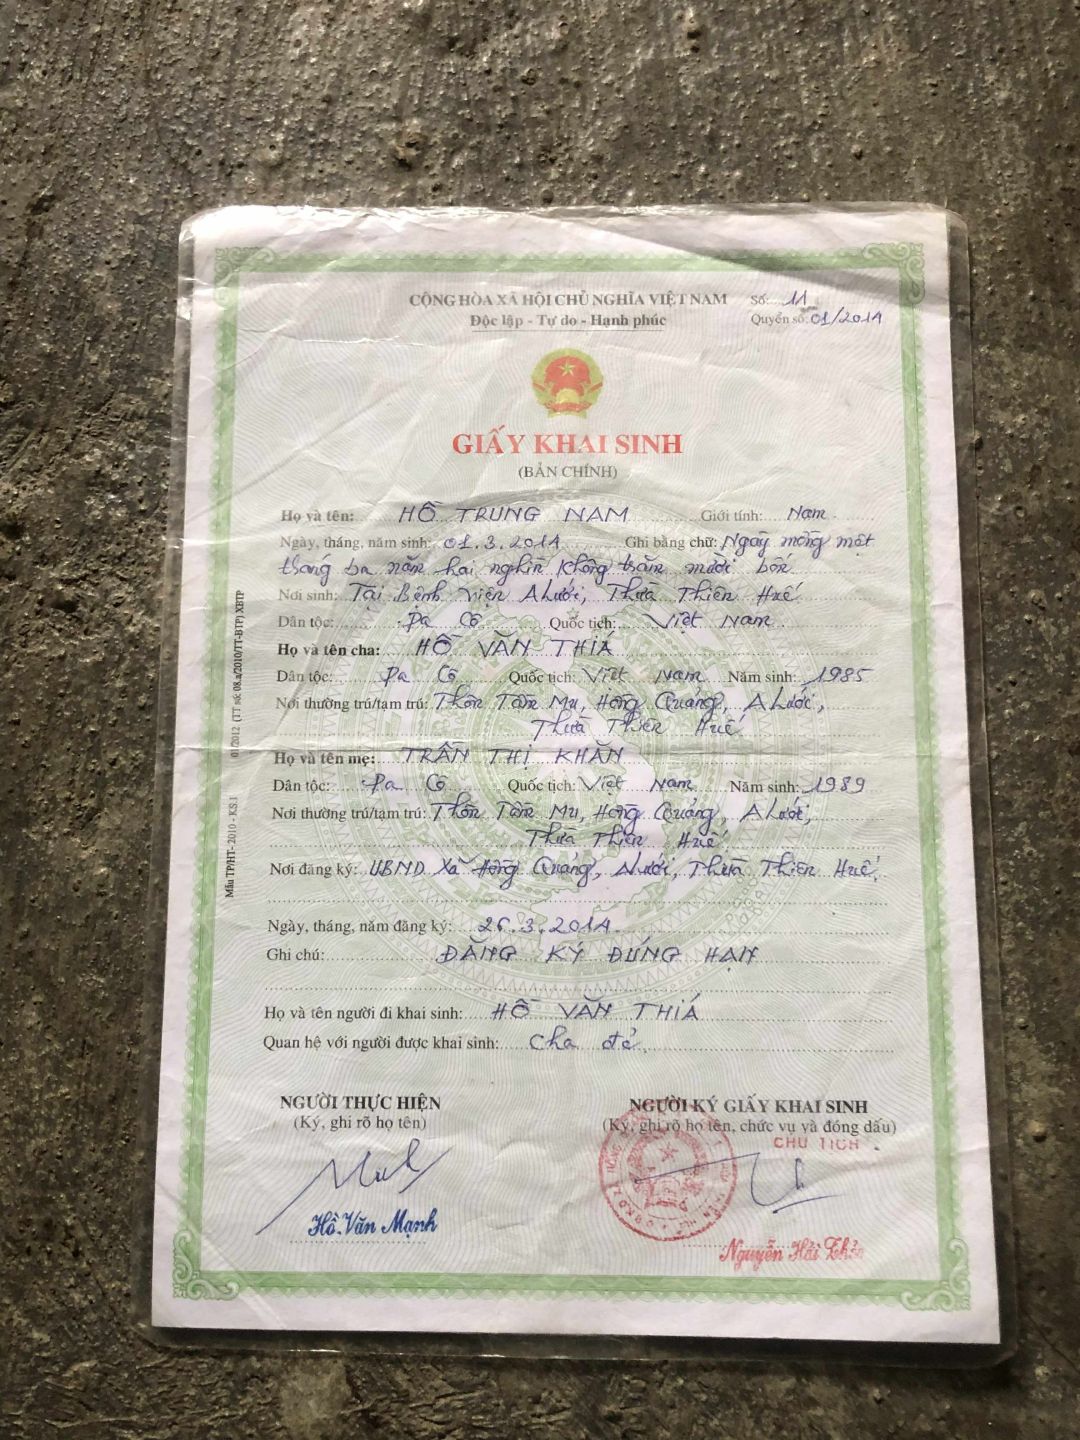 CỘNG HÒA XÃ HỘI CHỦ NGHĨA VIỆT NAM
Độc lập - Tự do - Hạnh phúc
Số: 11
Quyển số: 01/2014
GIẤY KHAI SINH
(BẢN CHÍNH)
Họ và tên: HỒ TRUNG NAM Giới tính: Nam
Ngày, tháng, năm sinh: 01.3.2014 Ghi bằng chữ: Ngày mồng một
tháng ba năm hai nghìn không trăm mười bốn
Nơi sinh: Tại Bệnh Viện A Lưới, Thừa Thiên Huế
Dân tộc: Pa Cô Quốc tịch: Việt Nam
Họ và tên cha: HỒ VĂN THIÁ
Dân tộc: Pa Cô Quốc tịch: Việt Nam Năm sinh: 1985
Nơi thường trú/tạm trú: Thôn Tân Mu, Hồng Quảng, A Lưới,
Thừa Thiên Huế
Họ và tên mẹ: TRẦN THỊ KHĂN
Dân tộc: Pa Cô Quốc tịch: Việt Nam Năm sinh: 1989
Nơi thường trú/tạm trú: Thôn Tân Mu, Hồng Quảng, A Lưới,
Thừa Thiên Huế
Nơi đăng ký: UBND Xã Hồng Quảng, A Lưới, Thừa Thiên Huế.
Ngày, tháng, năm đăng ký: 26.3.2014
Ghi chú: ĐĂNG KÝ ĐÚNG HẠN
Họ và tên người đi khai sinh: HỒ VĂN THIÁ
Quan hệ với người được khai sinh: Cha đẻ
NGƯỜI THỰC HIỆN
(Ký, ghi rõ họ tên)
Hồ Văn Mạnh
NGƯỜI KÝ GIẤY KHAI SINH
(Ký, ghi rõ họ tên, chức vụ và đóng dấu)
CHỦ TỊCH
Nguyễn Hải
Mẫu TP/HT- 2010 - KS.1 01/2012 (TT số: 08.a/2010/TT-BTP) XBTP